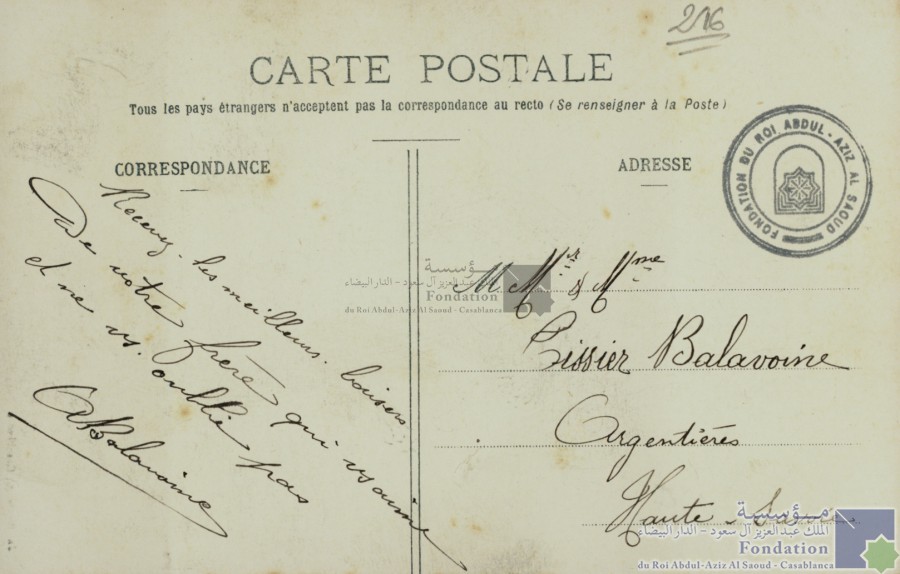 216
CARTE POSTALE
Tous les pays étrangers n'acceptent pas la correspondance au recto (Se renseigner à la Poste)
CORRESPONDANCE
Recevez les meilleurs baisers
de votre frère qui vs aime
et ne vs. oublie pas
ABalavoine
ADRESSE
FONDATION DU ROI ABDUL-AZIZ AL SAOUD
M. Mr & Mme
Tissier Balavoine
Argentières
Haute-Savoie
مؤسسة
الملك عبد العزيز آل سعود - الدار البيضاء
Fondation
du Roi Abdul-Aziz Al Saoud - Casablanca
مؤسسة
الملك عبد العزيز آل سعود - الدار البيضاء
Fondation
du Roi Abdul-Aziz Al Saoud - Casablanca